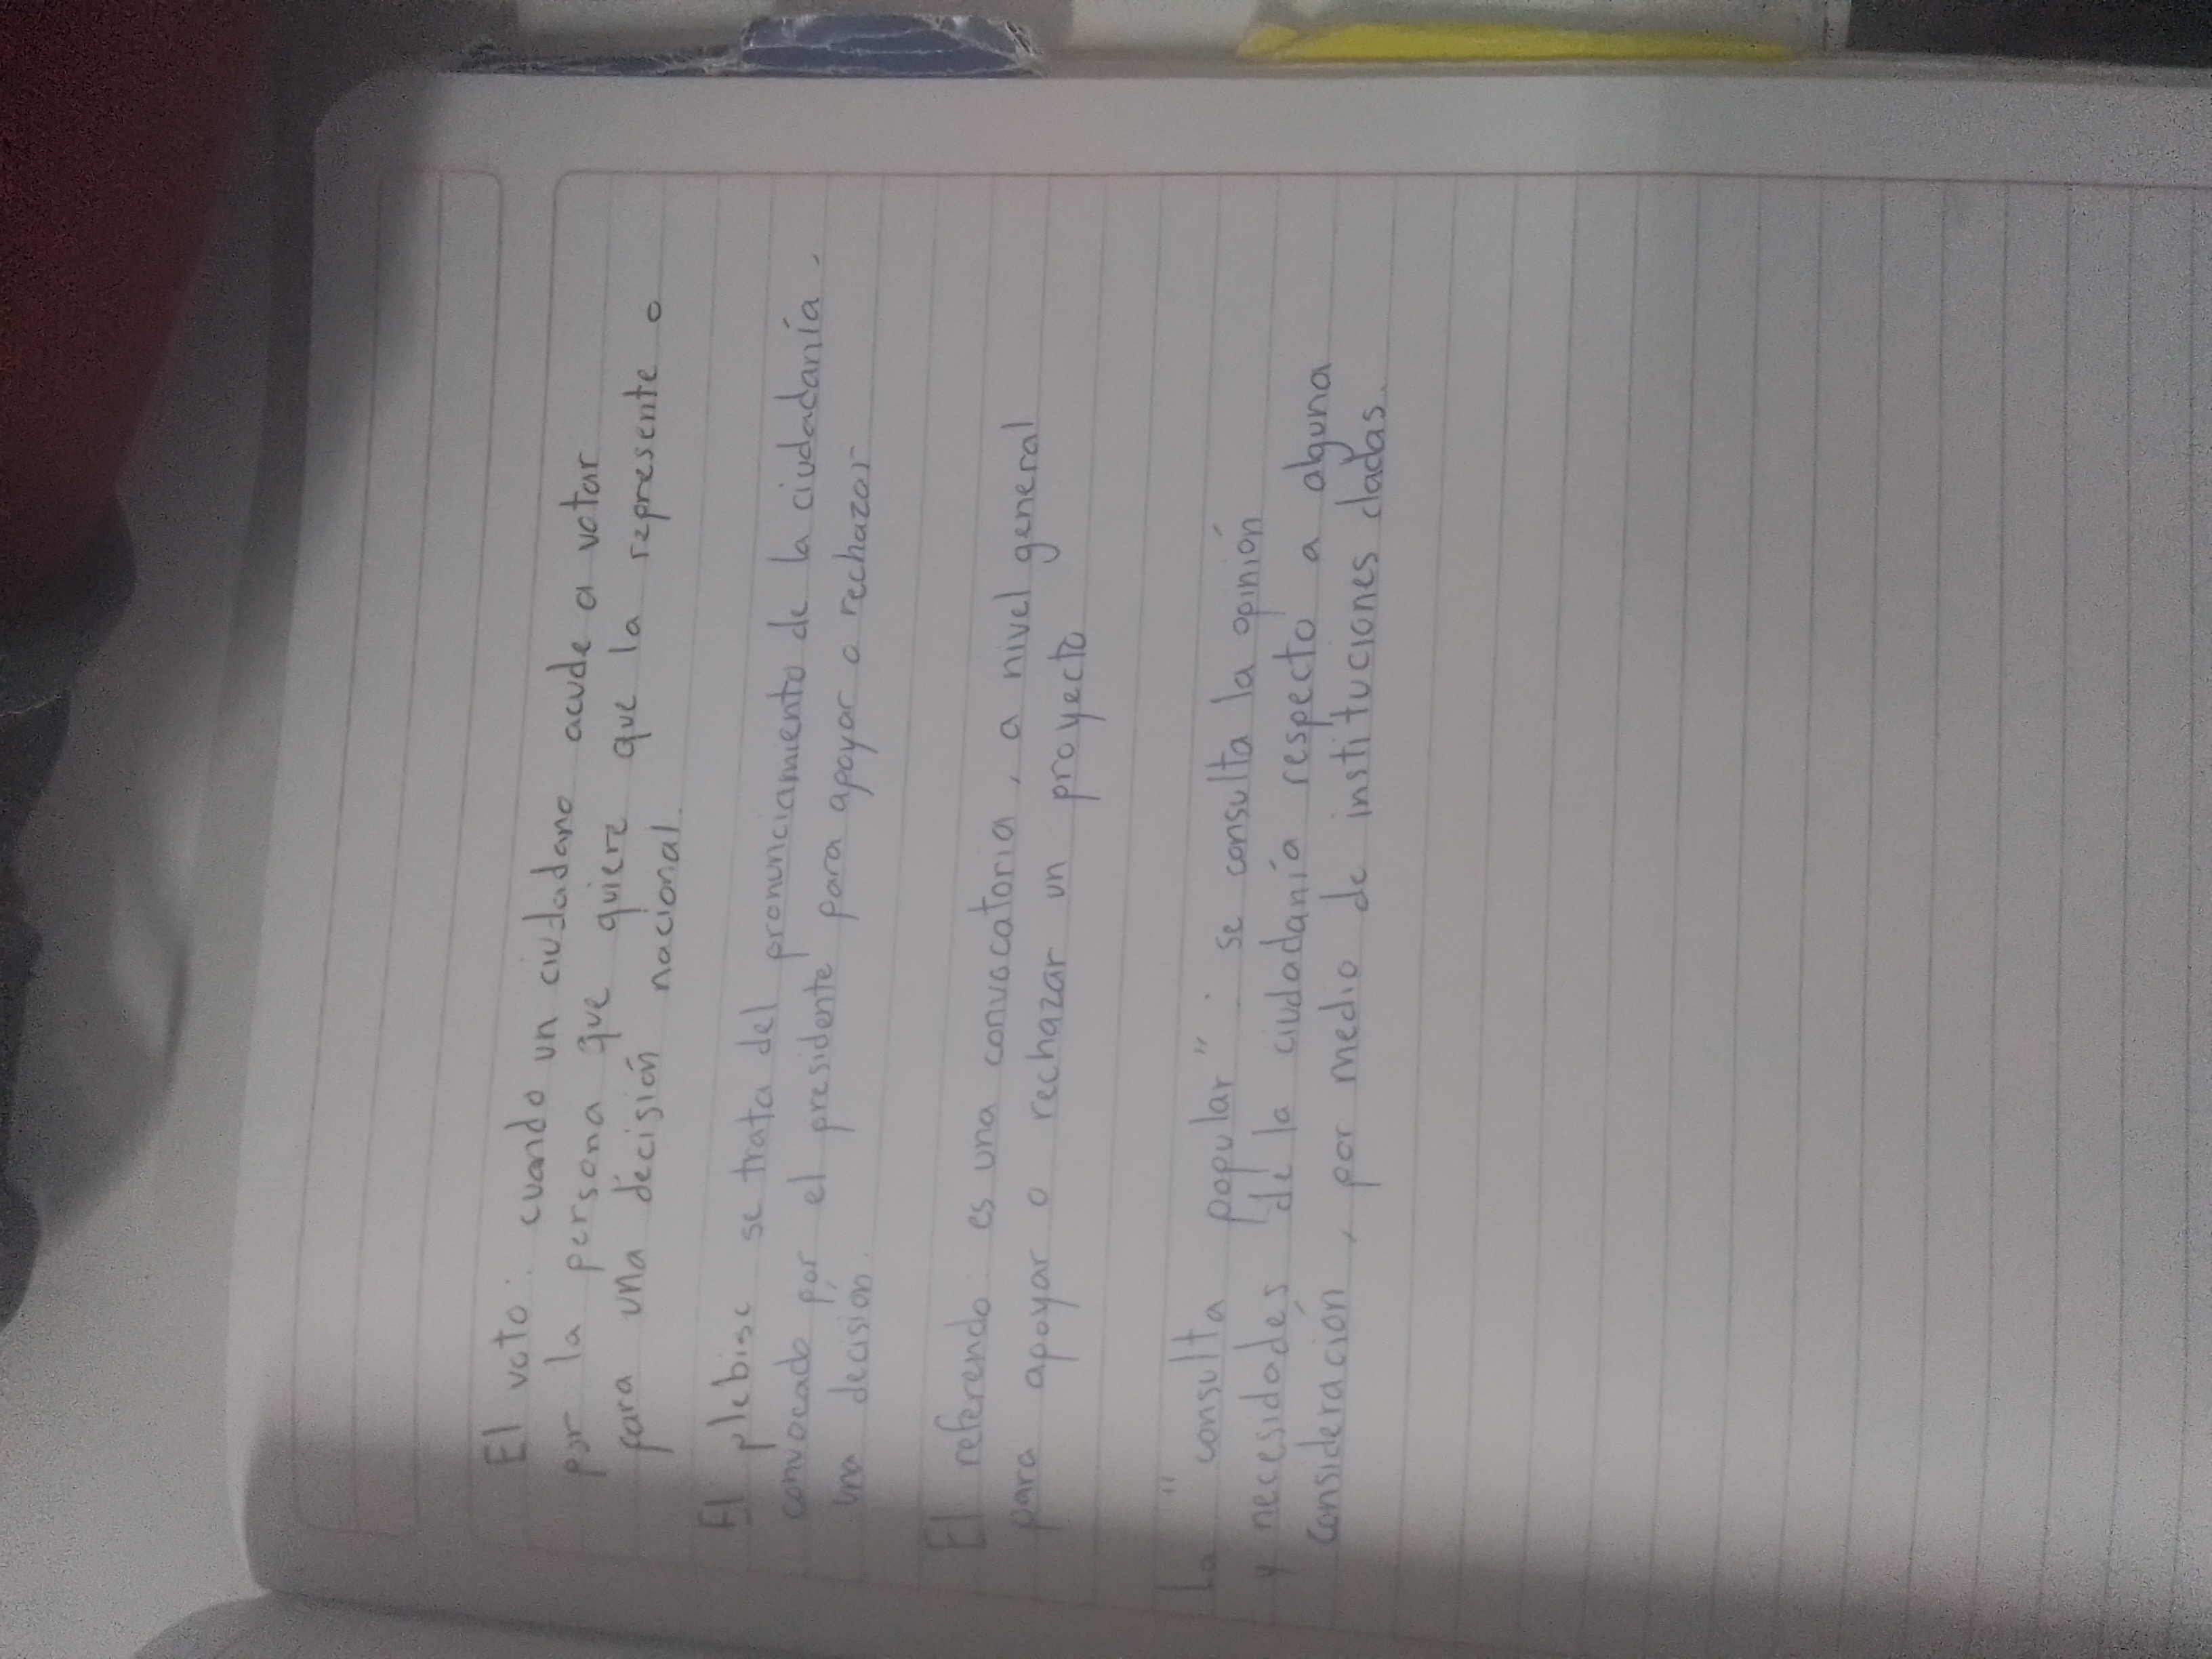 El voto: cuando un ciudadano acude a votar
por la persona que quiere que la represente o
para una decisión nacional.
El plebisc se trata del pronunciamiento de la ciudadanía,
convocado por el presidente para apoyar o rechazar
una decisión.
El referendo: es una convocatoria, a nivel general
para apoyar o rechazar un proyecto
La "consulta popular": se consulta la opinión
y necesidades de la ciudadanía respecto a alguna
consideración, por medio de instituciones dadas.